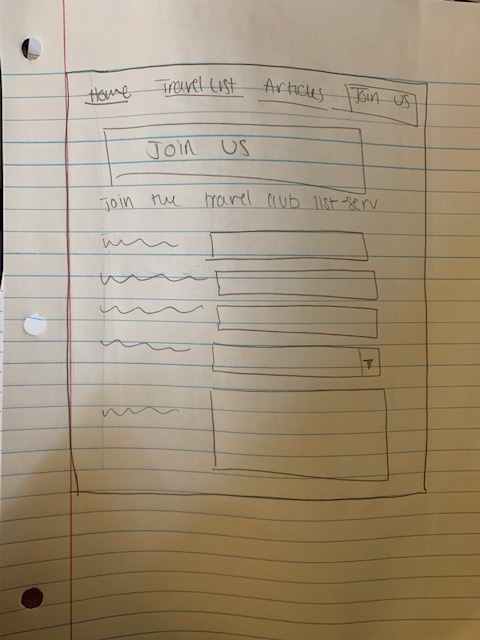 Home Travel List Articles Join US
Join US
Join the travel club list-serv